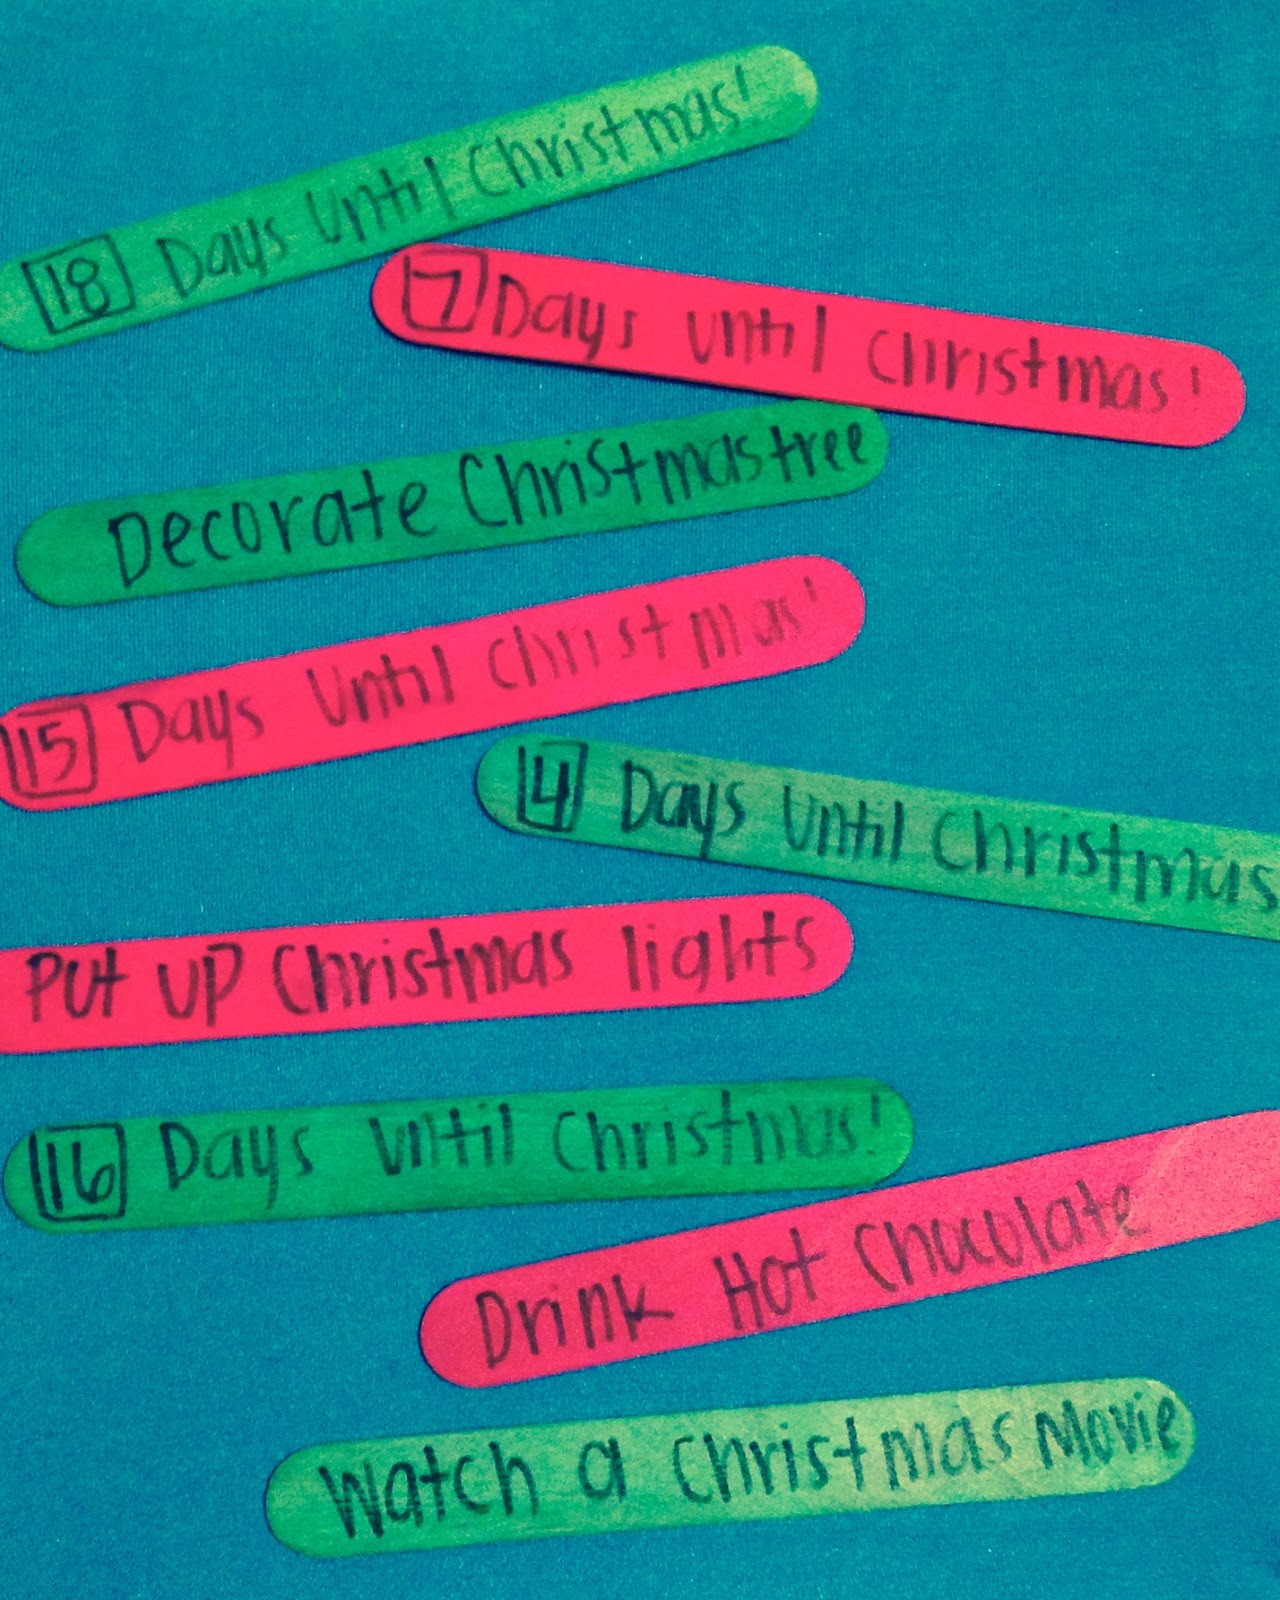 18 Days Until Christmas!
7 Days Until Christmas!
Decorate Christmas tree
15 Days Until Christmas!
4 Days Until Christmas
Put up Christmas lights
16 Days Until Christmas!
Drink Hot Chocolate
Watch a Christmas Movie